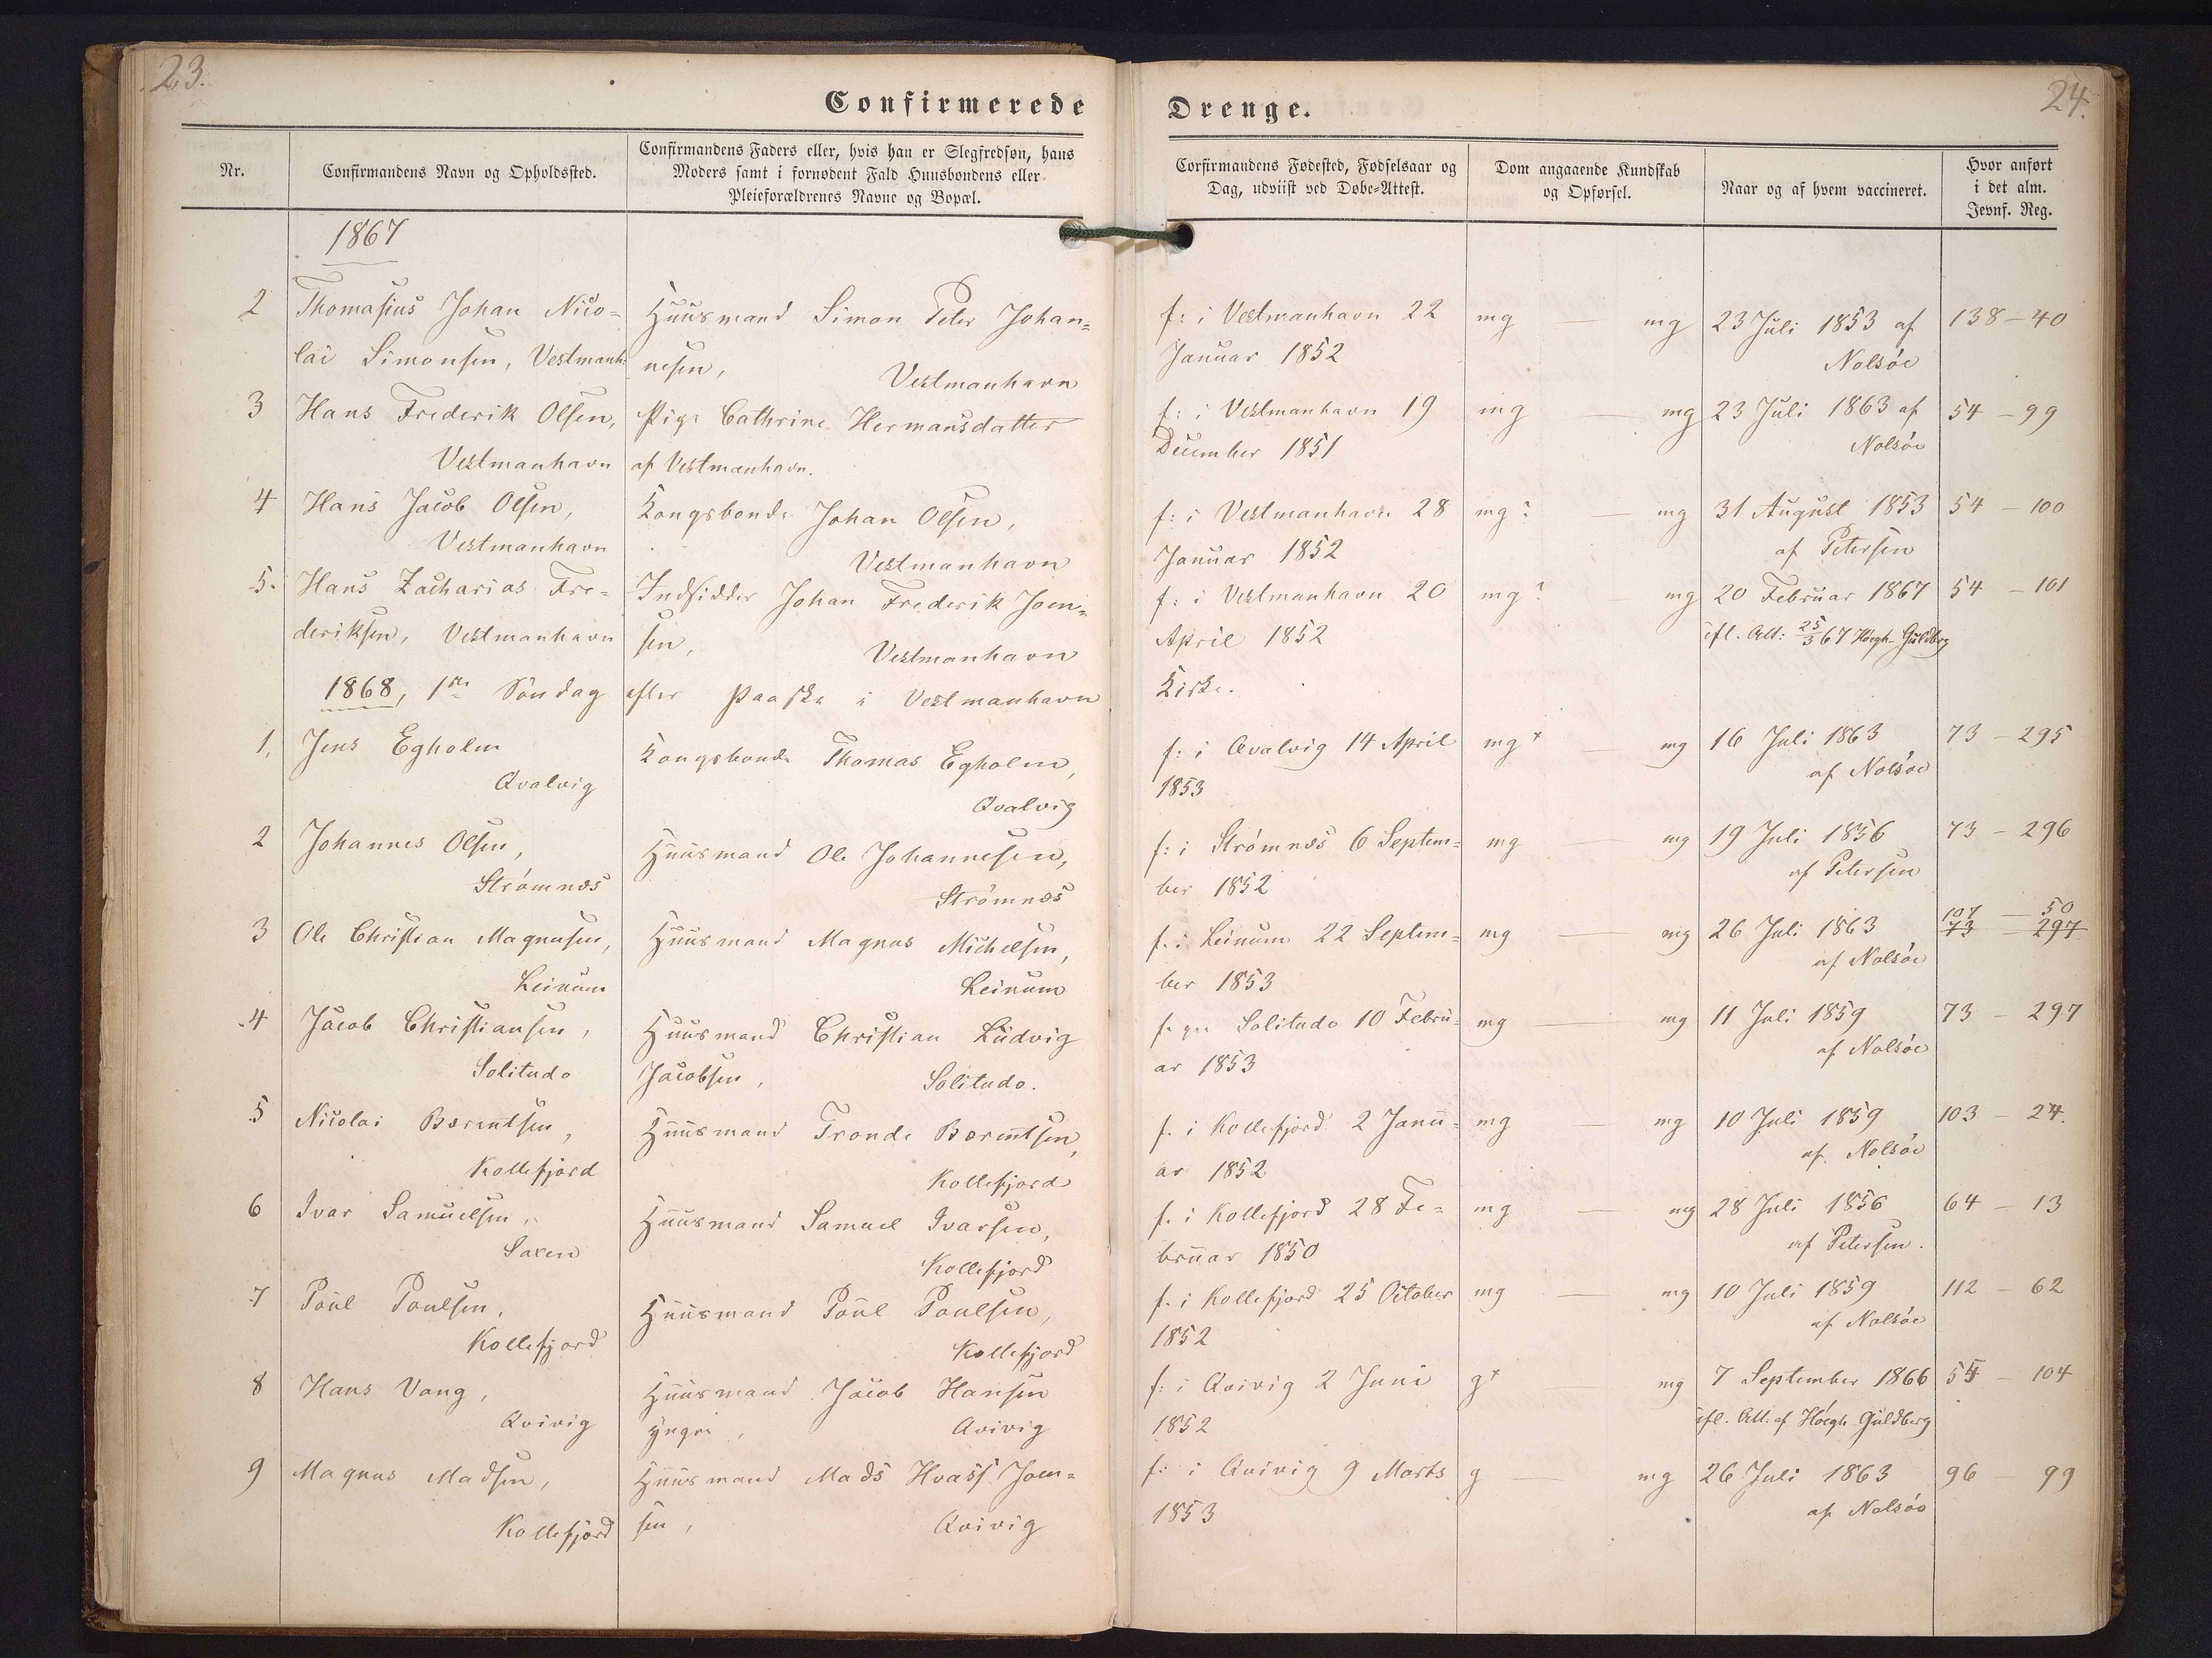 23.
24.
Confirmerede Drenge.
Nr.
Confirmandens Navn og Opholdssted.
Confirmandens Faders eller, hvis han er Slegfredsøn, hans
Moders samt i fornødent Fald Huusbondens eller
Pleieforældrenes Navne og Bopæl.
Corfirmandens Fødested, Fødselsaar og
Dag, udviist ved Døbe-Attest.
Dom angaaende Kundskab
og Opførsel.
Naar og af hvem vaccineret.
Hvor anført
i det alm.
Jevnf. Reg.
1867
2 Thomasius Johan Nico= Huusmand Simon Peter Johan= f: i Vestmanhavn 22 mg — mg 23 Juli 1853 af 138 – 40
lai Simonsen, Vestmanh: nesen, Vestmanhavn Januar 1852 Nolsöe
3 Hans Frederik Olsen, Pige Cathrine Hermansdatter f: i Vestmanhavn 19 mg — mg 23 Juli 1863 af 54 – 99
Vestmanhavn af Vestmanhavn. December 1851 Nolsöe
4 Hans Jacob Olsen, Kongsbonde Johan Olsen, f: i Vestmanhavn 28 mg? — mg 31 August 1853 54 – 100
Vestmanhavn Vestmanhavn Januar 1852 af Petersen
5. Hans Zacharias Fre= Indsidder Johan Frederik Joen= f: i Vestmanhavn 20 mg? — mg 20 Februar 1867 54 – 101
deriksen, Vestmanhavn sen, Vestmanhavn April 1852 ifl. Att: 25/3 67 Høegh-Guldberg
1868, 1ste Söndag efter Paaske i Vestmanhavn Kirke.
1. Jens Egholm Kongsbonde Thomas Egholm, f: i Qvalvig 14 April mg+ — mg 16 Juli 1863 73 – 295
Qvalvig Qvalvig 1853 af Nolsöe
2 Johannes Olsen, Huusmand Ole Johannesen, f: i Strömnæs 6 Septem= mg — mg 19 Juli 1856 73 – 296
Strömnæs Strömnæs ber 1852 af Petersen
107 – 50
3 Ole Christian Magnusen, Huusmand Magnus Michelsen, f. i Leinum 22 Septem= mg — mg 26 Juli 1863 73 – 297
Leinum Leinum ber 1853 af Nolsöe
4 Jacob Christiansen, Huusmand Christian Ludvig f. paa Solitudo 10 Febru= mg — mg 11 Juli 1859 73 – 297
Solitudo Jacobsen, Solitudo. ar 1853 af Nolsöe
5 Nicolai Berentsen, Huusmand Tronde Berentsen, f. i Kollefjord 2 Janu= mg — mg 10 Juli 1859 103 – 24.
Kollefjord Kollefjord ar 1852 af Nolsöe
6 Ivar Samuelsen, Huusmand Samuel Ivarsen, f. i Kollefjord 28 Fe= mg — mg 28 Juli 1856 64 – 13
Saxen Kollefjord bruar 1850 af Petersen.
7 Poul Poulsen, Huusmand Poul Poulsen, f. i Kollefjord 25 October mg — mg 10 Juli 1859 112 – 62
Kollefjord Kollefjord 1852 af Nolsöe
8 Hans Vang, Huusmand Jacob Hansen f: i Qvivig 2 Juni g+ — mg 7 September 1866 54 – 104
Qvivig yngre, Qvivig 1852 ifl. Att. af Høegh-Guldberg
9 Magnus Madsen, Huusmand Mads Hvass Joen= f: i Qvivig 9 Marts g — mg 26 Juli 1863 96 – 99
Kollefjord sen, Qvivig 1853 af Nolsöe